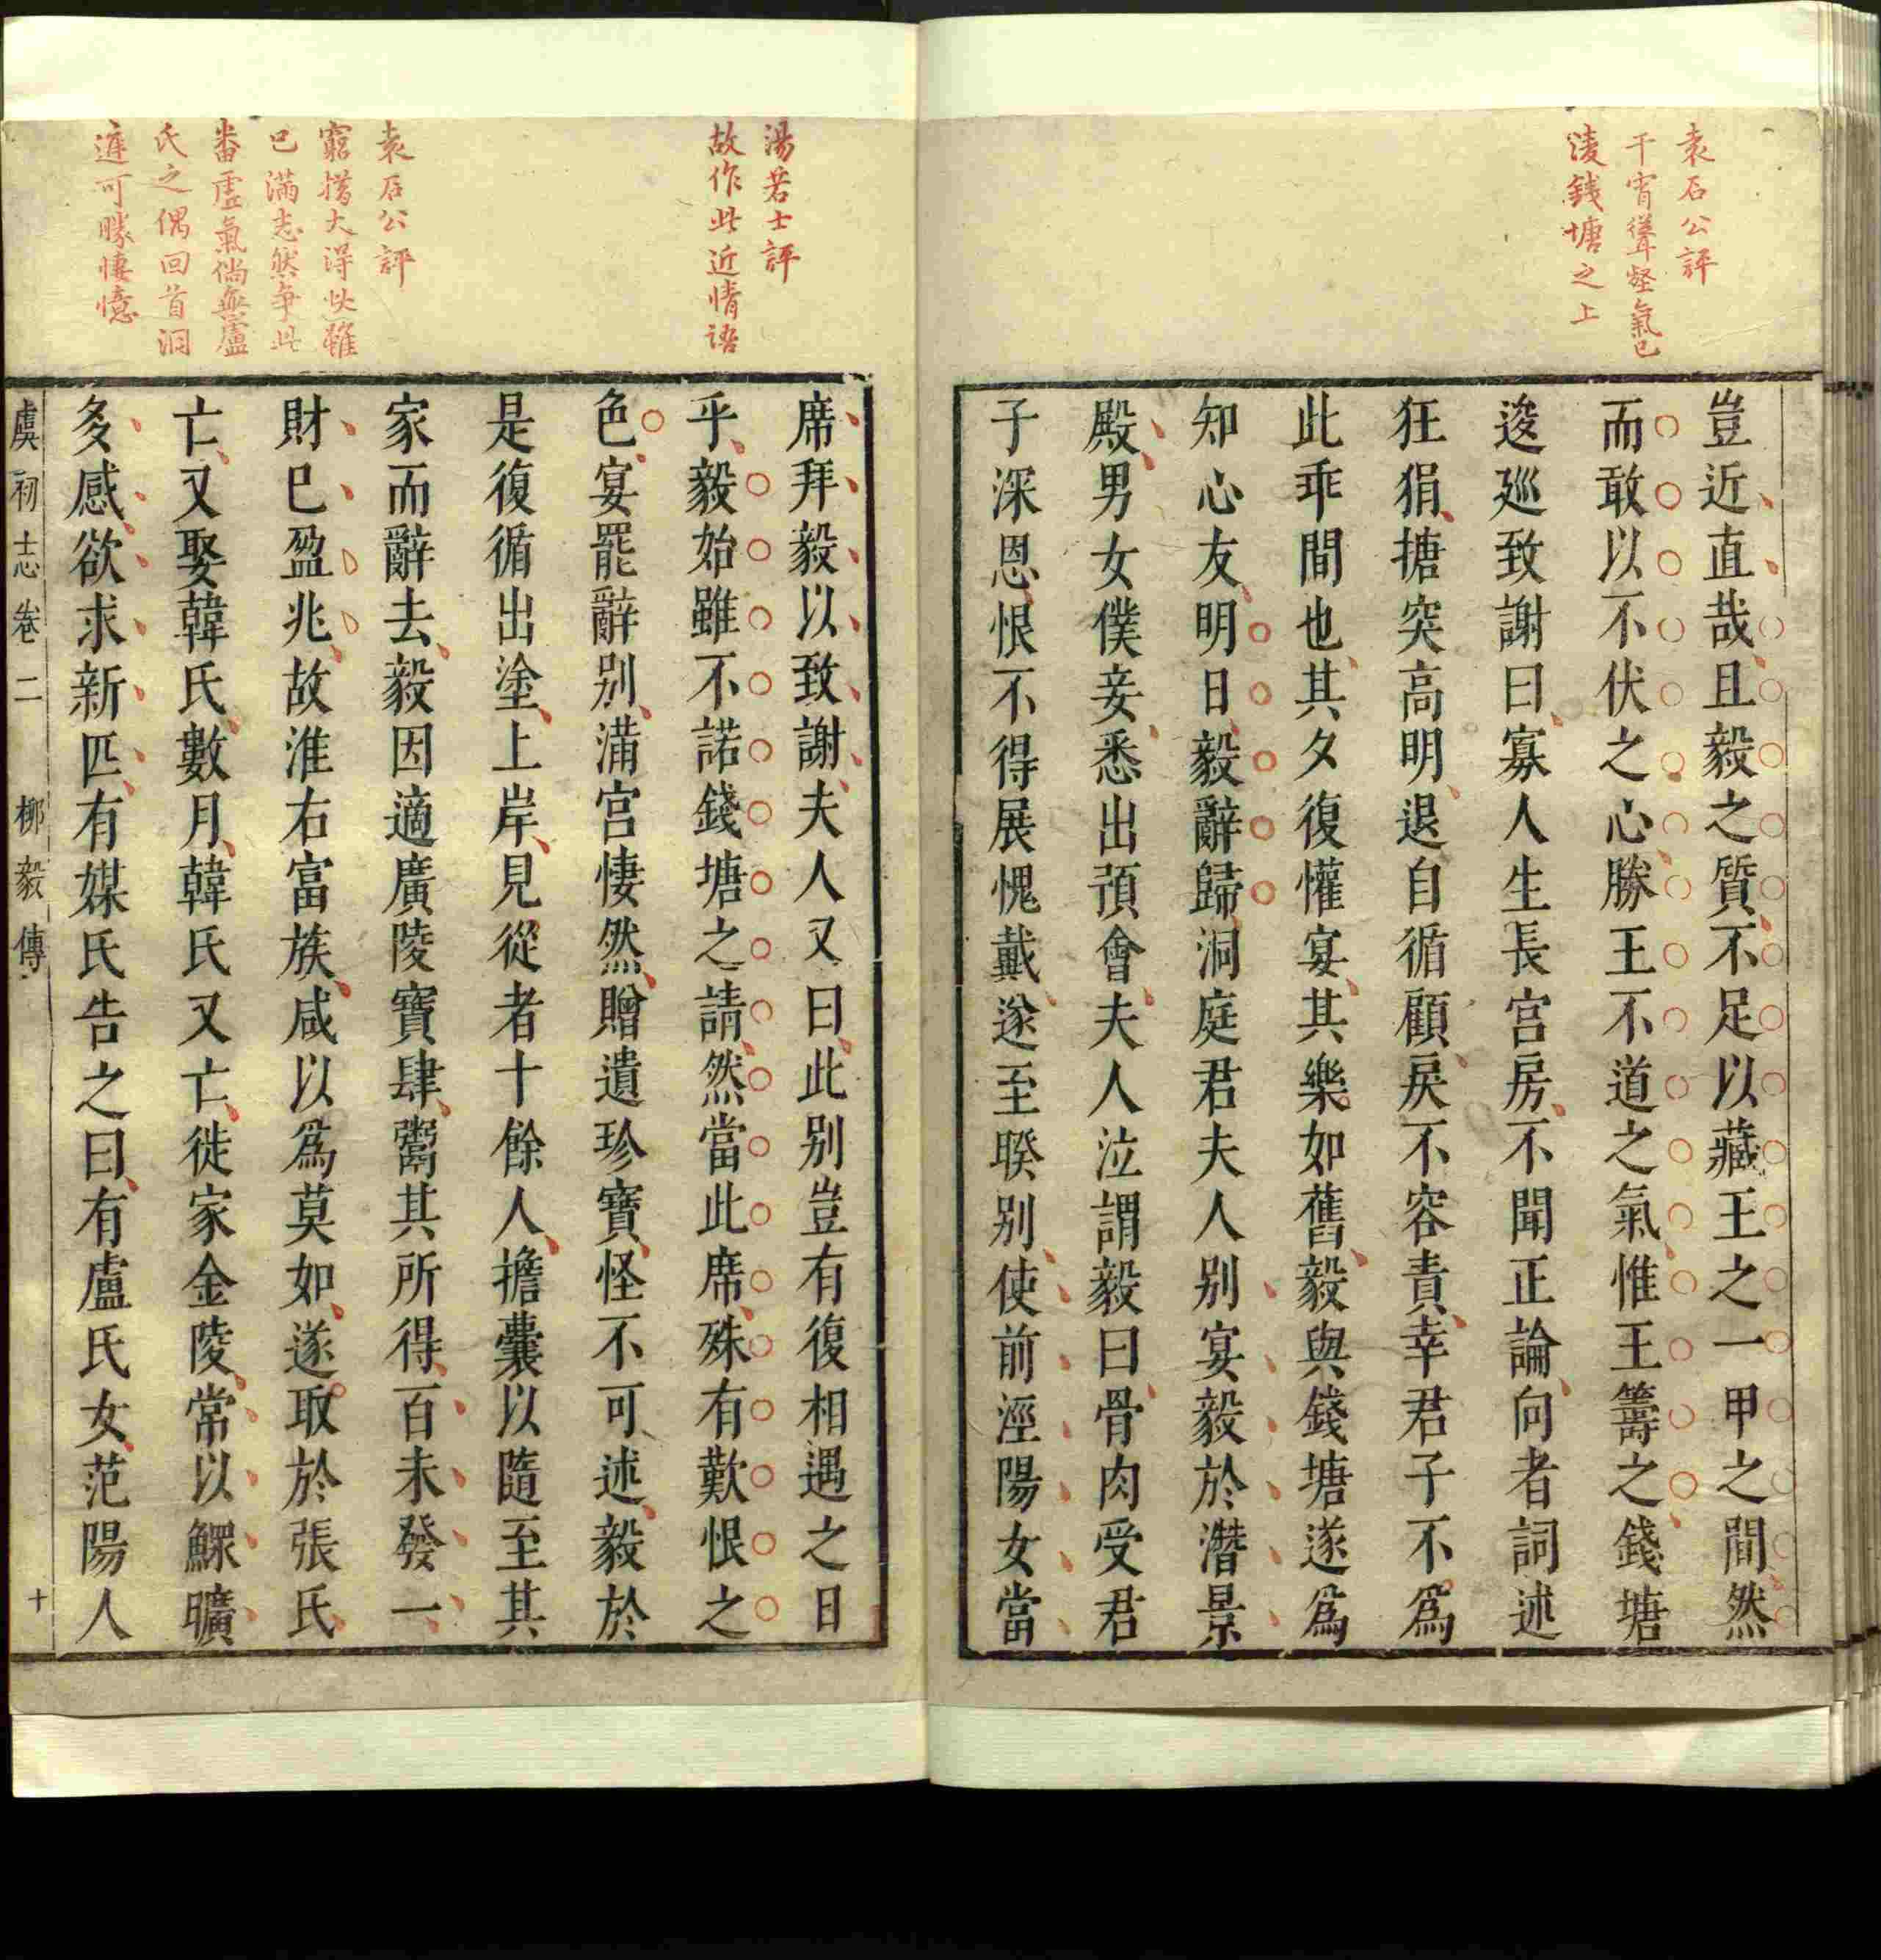 袁石公評
干宵聳壑氣已
淩錢塘之上
豈近直哉且毅之質不足以藏王之一甲之間然
而敢以不伏之心勝王不道之氣惟王籌之錢塘
逡廵致謝曰寡人生長宫房不聞正論向者詞述
狂狷搪突高明退自循顧戾不容責幸君子不爲
此乖間也其夕復懽宴其樂如舊毅與錢塘遂爲
知心友明日毅辭歸洞庭君夫人别宴毅於濳景
殿男女僕妾悉出預會夫人泣謂毅曰骨肉受君
子深恩恨不得展愧戴遂至睽别使前涇陽女當
湯若士評
故作此近情語
袁石公評
窮措大得此雖
已滿志然爭此
番虛氣倘無盧
氏之偶回首洞
遮可勝悽憶
席拜毅以致謝夫人又曰此别豈有復相遇之日
乎毅始雖不諾錢塘之請然當此席殊有歎恨之
色宴罷辭别滿宫悽然贈遺珍寶怪不可述毅於
是復循出塗上岸見從者十餘人擔囊以隨至其
家而辭去毅因適廣陵寶肆鬻其所得百未發一
財已盈兆故淮右富族咸以爲莫如遂取於張氏
亡又娶韓氏數月韓氏又亡徙家金陵常以鰥曠
多感欲求新匹有媒氏告之曰有盧氏女范陽人
虞初志卷二 栁毅傳 十